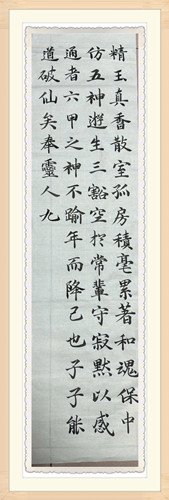 精王真香散室孤房積毫累著和魂保中
仿五神遊生三豁空於常輩守寂默以感
通者六甲之神不踰年而降己也子子能
道破仙矣奉靈人九